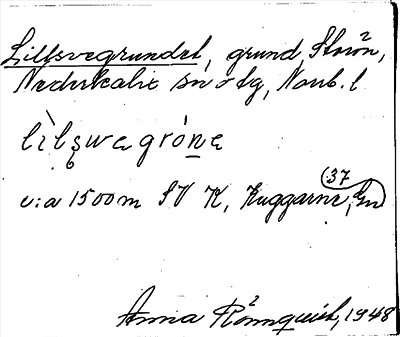 Lillsvegrundet, grund, Storön,
Nederkalix sn o tg, Norrb. l
lìlswagrónę
c:a 1500 m SV K, Kuggarne, Gn
37
Anna Rönnquist, 1948